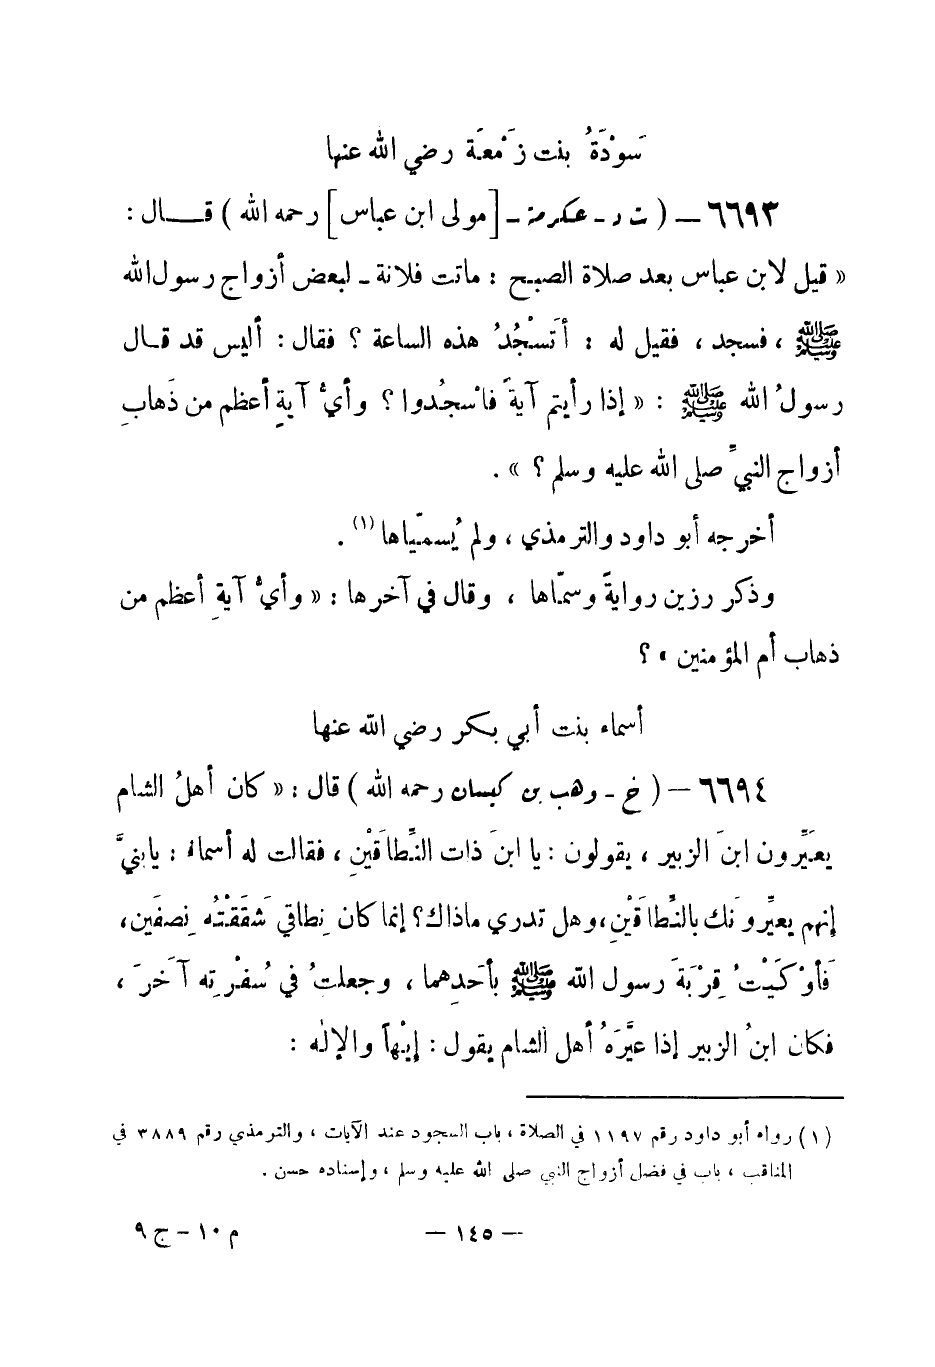 سَوْدَةُ بنت زَمْعَة رضي الله عنها
٦٦٩٣ – ( ت د - عكرمة - [مولى ابن عباس] رحمه الله ) قــال :
« قيل لابن عباس بعد صلاة الصبح : ماتت فلانة - لبعض أزواج رسول الله
ﷺ ، فسجد ، فقيل له : أتَسْجُدُ هذه الساعة ؟ فقال : أليس قد قال
رسولُ الله ﷺ : « إذا رأيتم آيةً فاسْجُدوا ؟ وأيُّ آيةٍ أعظم من ذَهابِ
أزواج النبيِّ صلى الله عليه وسلم ؟ » .
أخرجه أبو داود والترمذي ، ولم يُسمّياها (١) .
وذكر رزين روايةً وسمّاها ، وقال في آخرها : « وأيُّ آيةٍ أعظم من
ذهاب أم المؤمنين » ؟
أسماء بنت أبي بكر رضي الله عنها
٦٦٩٤ – ( خ - وهب بن كيسان رحمه الله ) قال : « كان أهلُ الشام
يعَيِّرون ابنَ الزبير ، يقولون : يا ابنَ ذات النِّطاقَيْنِ ، فقالت له أسماءُ : يابنيَّ
إنهم يعيِّرونَك بالنِّطاقَيْنِ ، وهل تدري ماذاك؟ إنما كان نِطاقي شَقَقْتُه نِصفَين ،
فَأوْكَيْتُ قِرْبَةَ رسول الله ﷺ بأحَدِهما ، وجعلتُ في سُفْرتِه آخَرَ ،
فكان ابنُ الزبير إذا عيَّرَهُ أهل الشام يقول : إيْهاً والإلٰه :
(١) رواه أبو داود رقم ١١٩٧ في الصلاة ، باب السجود عند الآيات ، والترمذي رقم ٣٨٨٩ في
المناقب ، باب في فضل أزواج النبي صلى الله عليه وسلم ، وإسناده حسن .
– ١٤٥ –
م ١٠ – ج ٩